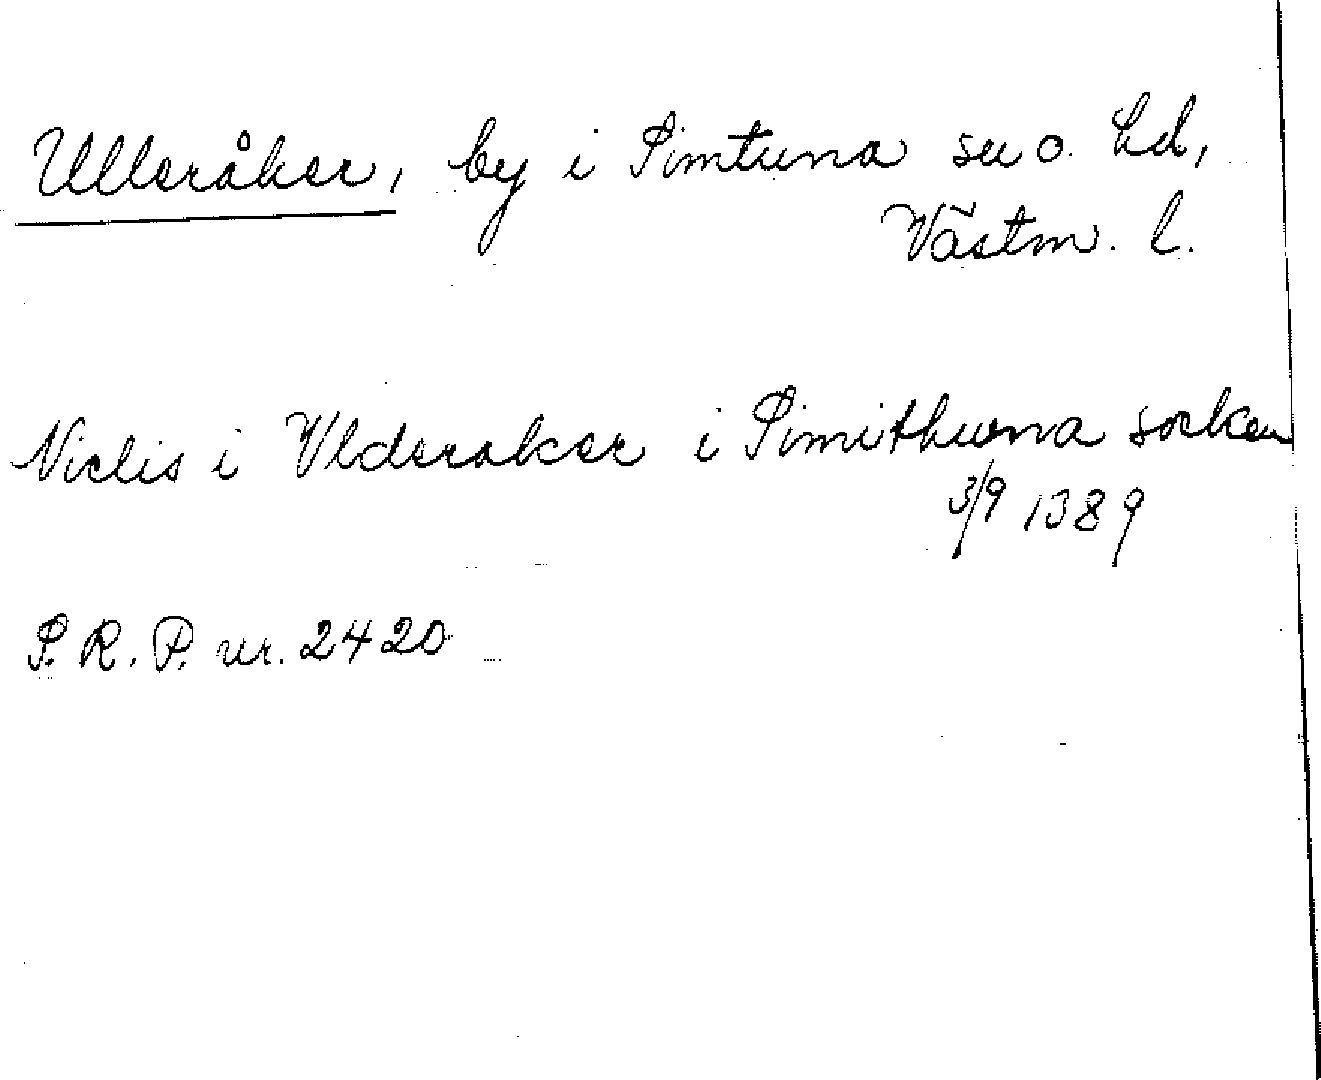 Ulleråker, by i Simtuna sn o. hd,
Västm. l.
Niclis i Vlderaker i Simithuna socken
3/9 1389
S. R. P. nr. 2420